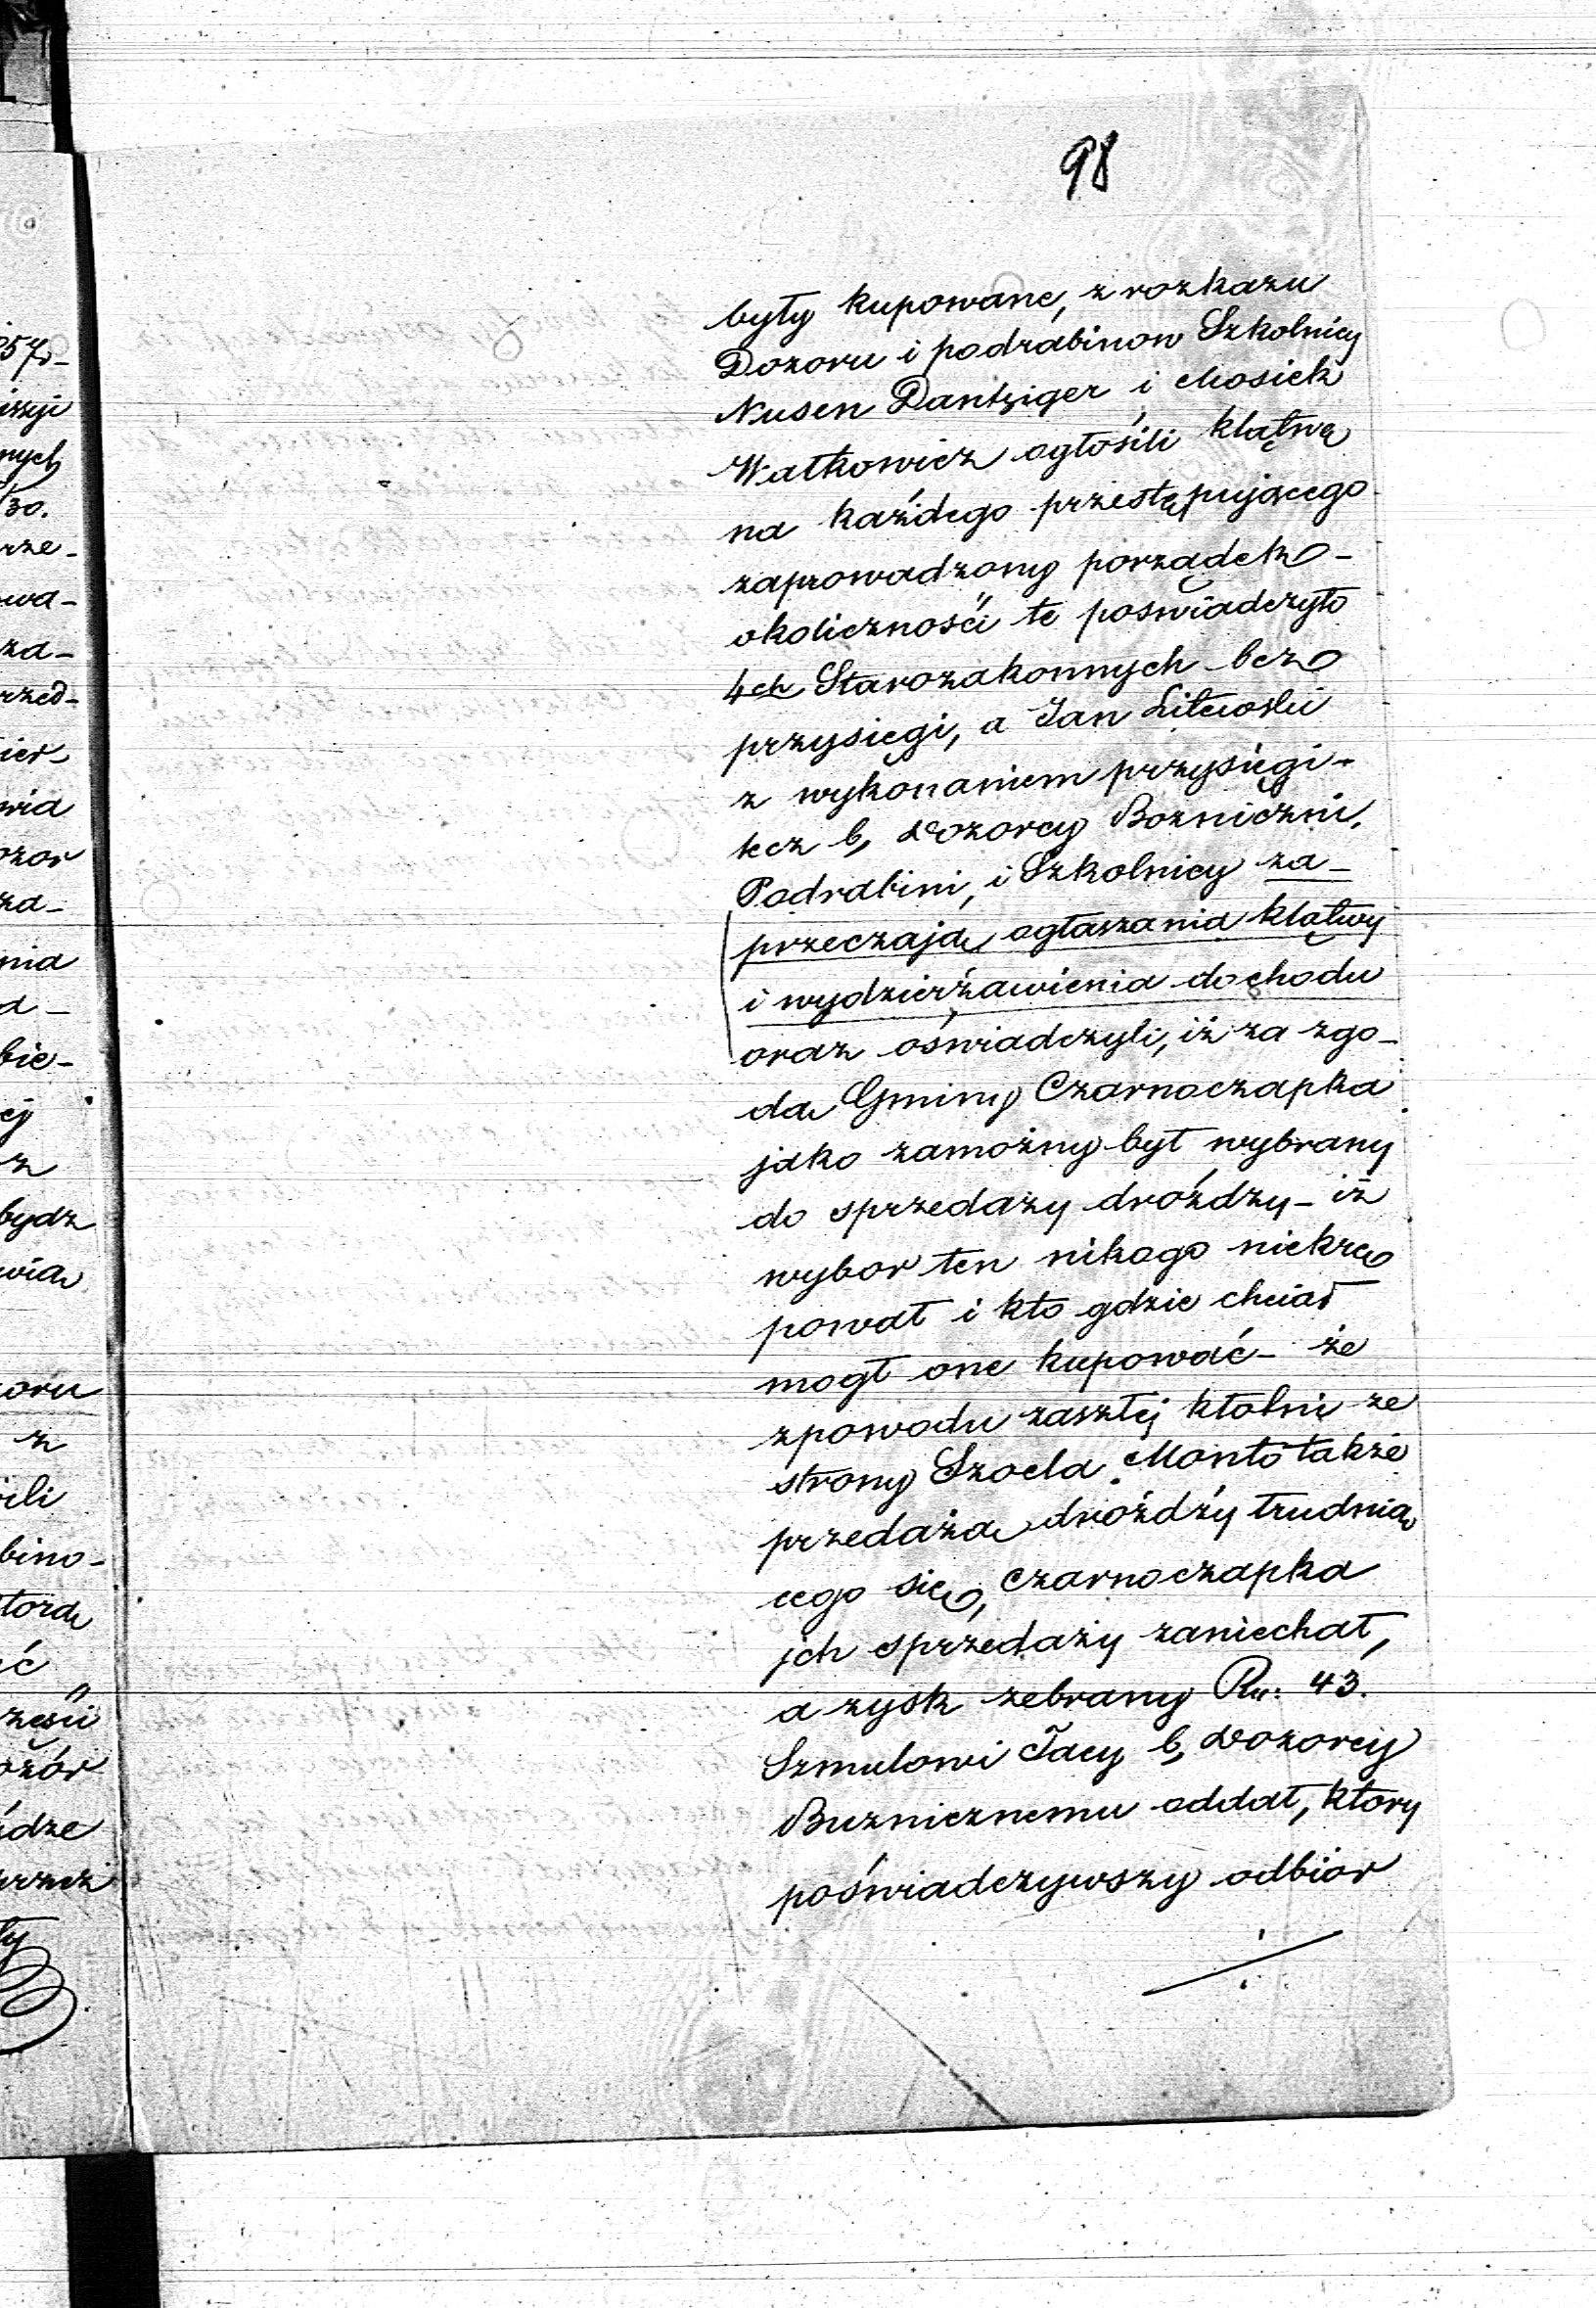 98
były kupowane, z rozkazu
Dozoru i podrabinow Szkolnicy
Nusen Dantziger i Mosiek
Watkowicz ogłosili klątwę
na każdego przestępującego
zaprowadzony porządek -
okoliczności te poswiadczyło
4ch Starozakonnych bez
przysięgi, a Jan Litewski
z wykonaniem przysięgi -
lecz b, Dozorcy Bozniczni,
Podrabini, i Szkolnicy za-
przeczają ogłaszania klątwy
i wydzierżawienia dochodu
oraz oświadczyli, iż za zgo-
dą Gminy Czarnoczapka
jako zamożny był wybrany
do sprzedaży drożdzy - iż
wybor ten nikogo niekrę
pował i kto gdzie chciał
mogł one kupować - że
zpowodu zaszłej kłótni ze
strony Szoela Monto także
przedażą drożdży trudnią
cego się, Czarnoczapka
ich sprzedaży zaniechał,
a zysk zebrany Rs: 43.
Szmulowi Tacy b, Dozorcy
Buznicznemu oddał, ktory
poświadczywszy odbior
57r-
iszyi
nych
/30.
rze-
wa-
za-
rzed-
ier-
wia
ozor
za-
nia
a-
bie-
ej
z
bydz
wia
zoru
z
ili
bino-
tora
ić
zęsci
ozór
idze
przez
ły